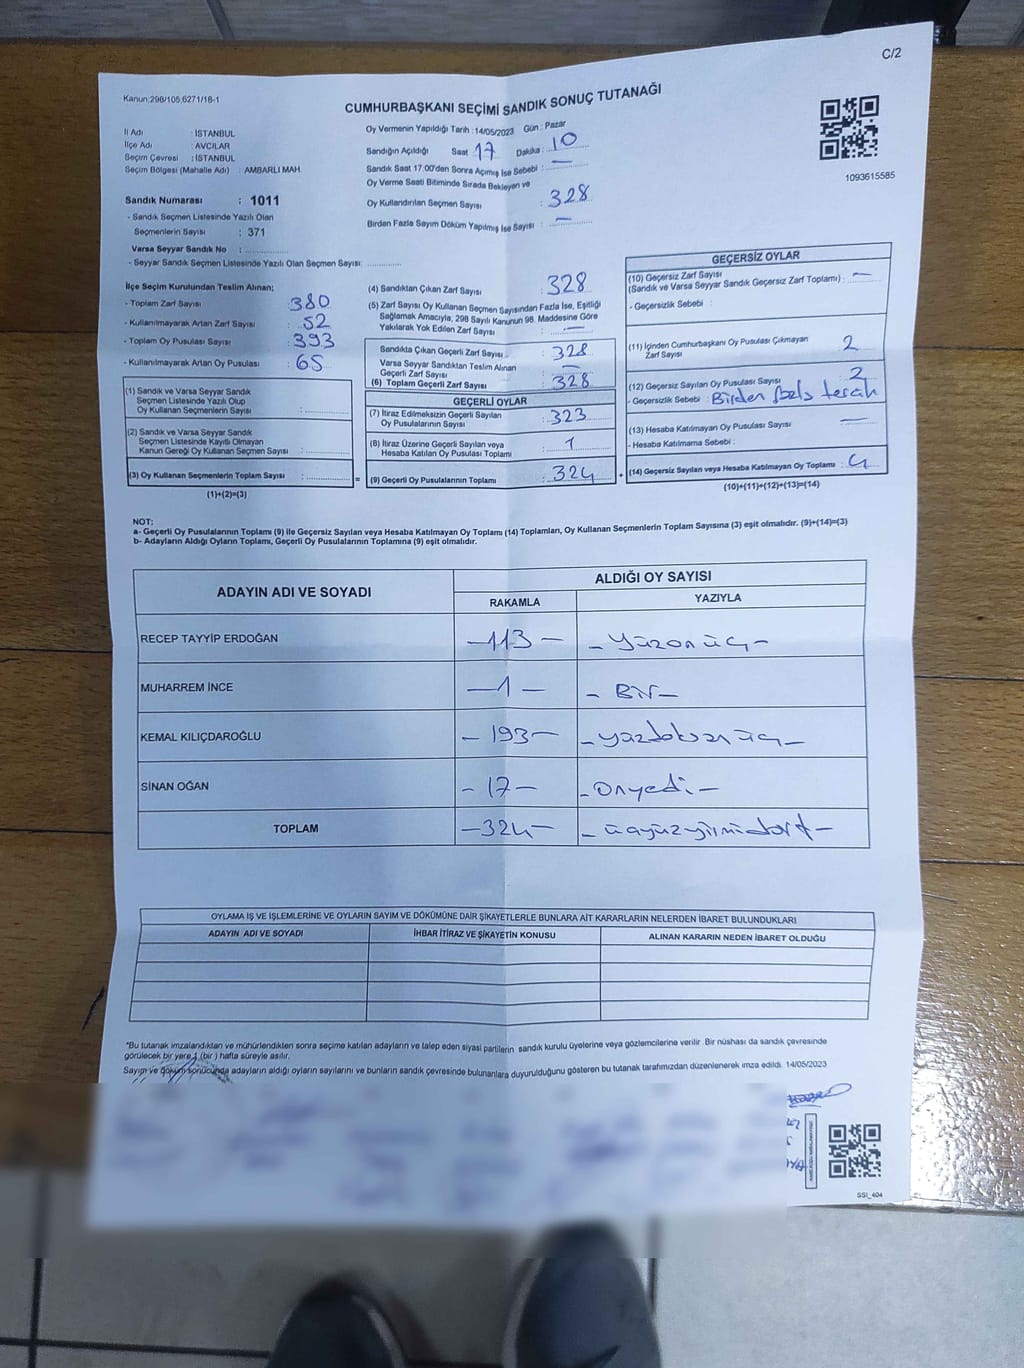 C/2
Kanun:298/105,6271/18-1
CUMHURBAŞKANI SEÇİMİ SANDIK SONUÇ TUTANAĞI
İl Adı : İSTANBUL
İlçe Adı : AVCILAR
Seçim Çevresi : İSTANBUL
Seçim Bölgesi (Mahalle Adı) : AMBARLI MAH.
Sandık Numarası : 1011
- Sandık Seçmen Listesinde Yazılı Olan
Seçmenlerin Sayısı : 371
Varsa Seyyar Sandık No :
- Seyyar Sandık Seçmen Listesinde Yazılı Olan Seçmen Sayısı:
Oy Vermenin Yapıldığı Tarih : 14/05/2023 Gün : Pazar
Sandığın Açıldığı Saat 17 Dakika : 10
Sandık Saat 17.00'den Sonra Açımış İse Sebebi : —
Oy Verme Saati Bitiminde Sırada Bekleyen ve
Oy Kullandırılan Seçmen Sayısı : 328
Birden Fazla Sayım Döküm Yapılmış İse Sayısı : —
1093615585
İlçe Seçim Kurulundan Teslim Alınan;
- Toplam Zarf Sayısı : 380
- Kullanılmayarak Artan Zarf Sayısı : 52
- Toplam Oy Pusulası Sayısı : 393
- Kullanılmayarak Artan Oy Pusulası : 65
(1) Sandık ve Varsa Seyyar Sandık
Seçmen Listesinde Yazılı Olup
Oy Kullanan Seçmenlerin Sayısı :
(2) Sandık ve Varsa Seyyar Sandık
Seçmen Listesinde Kayıtlı Olmayan
Kanun Gereği Oy Kullanan Seçmen Sayısı :
(3) Oy Kullanan Seçmenlerin Toplam Sayısı : =
(1)+(2)=(3)
(4) Sandıktan Çıkan Zarf Sayısı : 328
(5) Zarf Sayısı Oy Kullanan Seçmen Sayısından Fazla İse, Eşitliği
Sağlamak Amacıyla, 298 Sayılı Kanunun 98. Maddesine Göre
Yakılarak Yok Edilen Zarf Sayısı : —
Sandıkta Çıkan Geçerli Zarf Sayısı : 328
Varsa Seyyar Sandıktan Teslim Alınan
Geçerli Zarf Sayısı : —
(6) Toplam Geçerli Zarf Sayısı : 328
GEÇERLİ OYLAR
(7) İtiraz Edilmeksizin Geçerli Sayılan
Oy Pusulalarının Sayısı : 323
(8) İtiraz Üzerine Geçerli Sayılan veya
Hesaba Katılan Oy Pusulası Toplamı : 1
(9) Geçerli Oy Pusulalarının Toplamı : 324 +
GEÇERSİZ OYLAR
(10) Geçersiz Zarf Sayısı
(Sandık ve Varsa Seyyar Sandık Geçersiz Zarf Toplamı) : —
- Geçersizlik Sebebi :
(11) İçinden Cumhurbaşkanı Oy Pusulası Çıkmayan
Zarf Sayısı : 2
(12) Geçersiz Sayılan Oy Pusulası Sayısı : 2
- Geçersizlik Sebebi : Birden fazla tercih
(13) Hesaba Katılmayan Oy Pusulası Sayısı :
- Hesaba Katılmama Sebebi :
(14) Geçersiz Sayılan veya Hesaba Katılmayan Oy Toplamı : 4
(10)+(11)+(12)+(13)=(14)
NOT:
a- Geçerli Oy Pusulalarının Toplamı (9) ile Geçersiz Sayılan veya Hesaba Katılmayan Oy Toplamı (14) Toplamları, Oy Kullanan Seçmenlerin Toplam Sayısına (3) eşit olmalıdır. (9)+(14)=(3)
b- Adayların Aldığı Oyların Toplamı, Geçerli Oy Pusulalarının Toplamına (9) eşit olmalıdır.
ADAYIN ADI VE SOYADI ALDIĞI OY SAYISI
RAKAMLA YAZIYLA
RECEP TAYYİP ERDOĞAN —113— —Yüzonüç—
MUHARREM İNCE —1— —Bir—
KEMAL KILIÇDAROĞLU —193— —yüzdoksanüç—
SİNAN OĞAN —17— —onyedi—
TOPLAM —324— —üçyüzyirmidört—
OYLAMA İŞ VE İŞLEMLERİNE VE OYLARIN SAYIM VE DÖKÜMÜNE DAİR ŞİKAYETLERLE BUNLARA AİT KARARLARIN NELERDEN İBARET BULUNDUKLARI
ADAYIN ADI VE SOYADI İHBAR İTİRAZ VE ŞİKAYETİN KONUSU ALINAN KARARIN NEDEN İBARET OLDUĞU
*Bu tutanak imzalandıktan ve mühürlendikten sonra seçime katılan adayların ve talep eden siyasi partilerin sandık kurulu üyelerine veya gözlemcilerine verilir. Bir nüshası da sandık çevresinde
görülecek bir yere 1 (bir) hafta süreyle asılır.
Sayım ve döküm sonucunda adayların aldığı oyların sayılarını ve bunların sandık çevresinde bulunanlara duyurulduğunu gösteren bu tutanak tarafımızdan düzenlenerek imza edildi. 14/05/2023
SSI_404